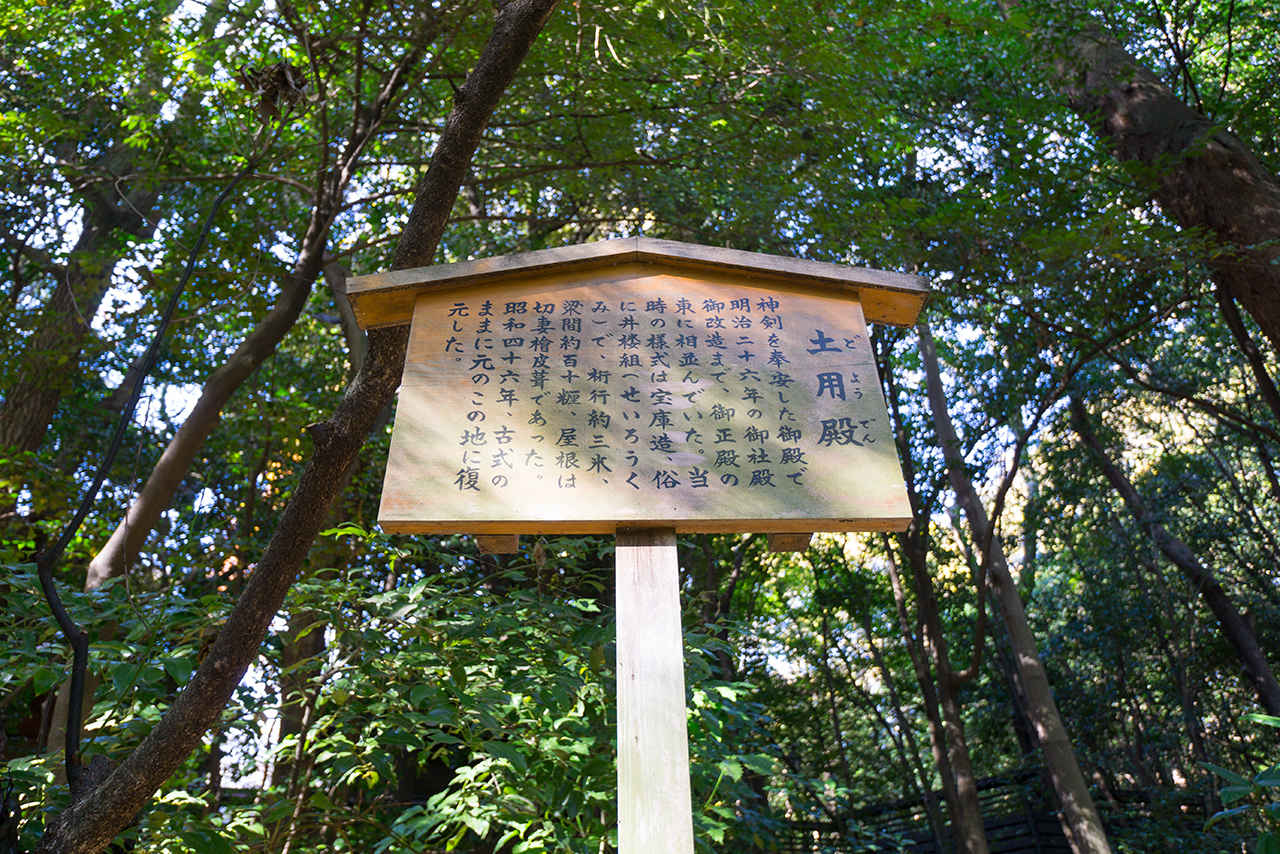 土用殿
どよう でん
神剣を奉安した御殿で
明治二十六年の御社殿
御改造まで、御正殿の
東に相並んでいた。当
時の様式は宝庫造、俗
に井楼組(せいろうく
み)で、桁行約三米、
梁間約百十糎、屋根は
切妻檜皮葺であった。
昭和四十六年、古式の
ままに元のこの地に復
元した。